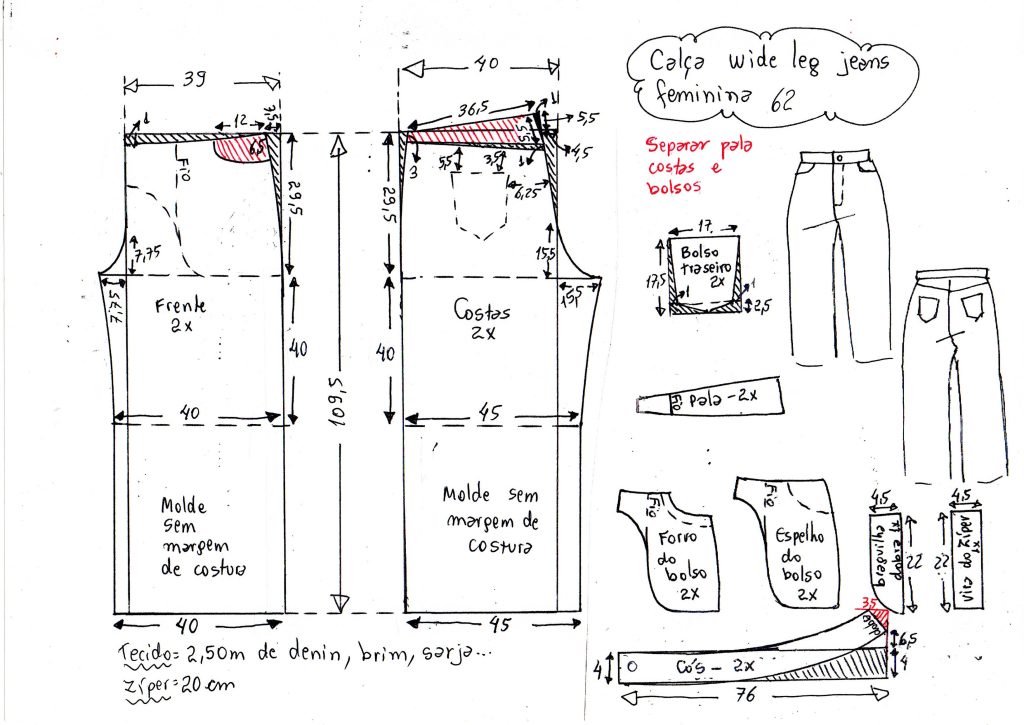 Calça wide leg jeans
feminina 62
Separar pala
costas e
bolsos
39
1
12
7,5
6,5
Fio
29,5
7,75
7,75
Frente
2x
40
40
Molde
sem
margem
de costura
40
109,5
40
36,5
1
5,5
5,5
4,5
3
5,5
3,5
1
6,25
29,5
15,5
15,5
Costas
2x
40
45
Molde sem
margem de
costura
45
17
17,5
Bolso
traseiro
2x
1
1
2,5
Fio
pala - 2x
Fio
Forro
do
bolso
2x
Fio
Espelho
do
bolso
2x
4,5
braguilha
dobra 1x
22
4,5
22
Vira do Zíper
1x
3,5
dobra
6,5
4
4
Cós - 2x
76
Tecido= 2,50m de denin, brim, sarja...
Zíper= 20 cm